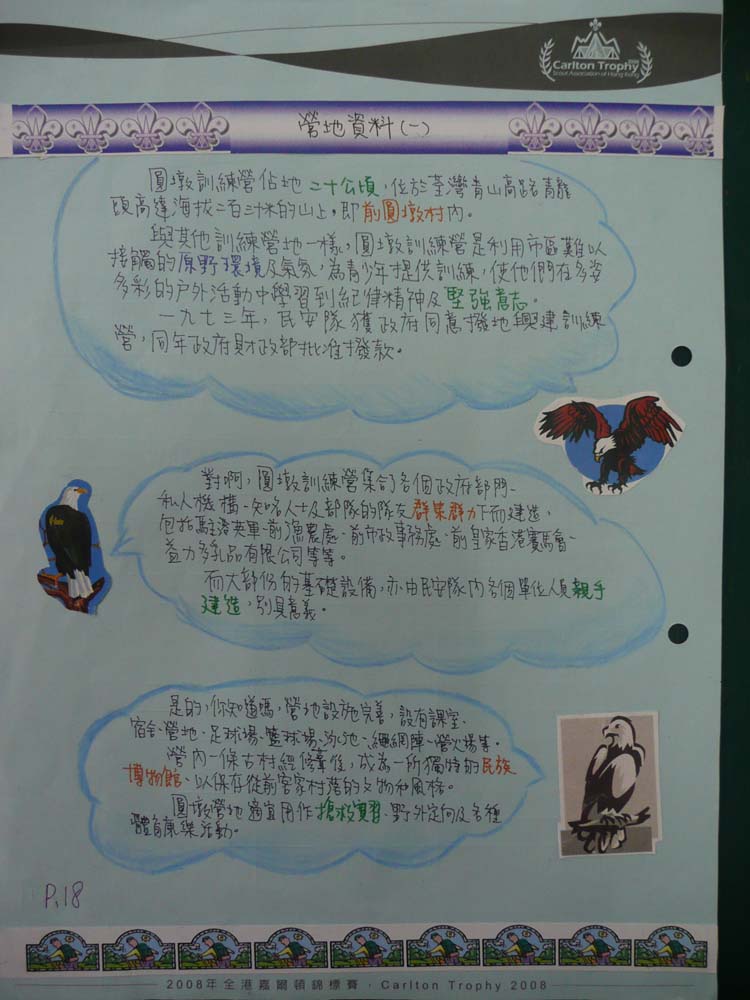 Carlton Trophy
Scout Association of Hong Kong
營地資料(一)
圓墩訓練營佔地二十公頃，位於荃灣青山高路青龍
頭高達海拔二百三十米的山上，即前圓墩村內。
與其他訓練營地一樣，圓墩訓練營是利用市區難以
接觸的原野環境及氣氛，為青少年提供訓練，使他們在多姿
多彩的戶外活動中學習到紀律精神及堅強意志。
一九七三年，民安隊獲政府同意撥地興建訓練
營，同年政府財政部批准撥款。
對啊，圓墩訓練營集合了各個政府部門、
私人機構、知名人士及部隊的隊友群策群力下而建造，
包括駐港英軍、前漁農處、前市政事務處、前皇家香港賽馬會、
益力多乳品有限公司等等。
而大部份的基礎設備，亦由民安隊內各個單位人員親手
建造，別具意義。
是的，你知道嗎，營地設施完善，設有課室、
宿舍、營地、足球場、籃球場、泳池、繩網陣、營火場等。
營內一條古村經修葺後，成為一所獨特的民族
博物館、以保存從前客家村落的文物和風格。
圓墩營地適宜用作搶救實習、野外定向及各種
體育康樂活動。
P.18
2008年全港嘉爾頓錦標賽，Carlton Trophy 2008